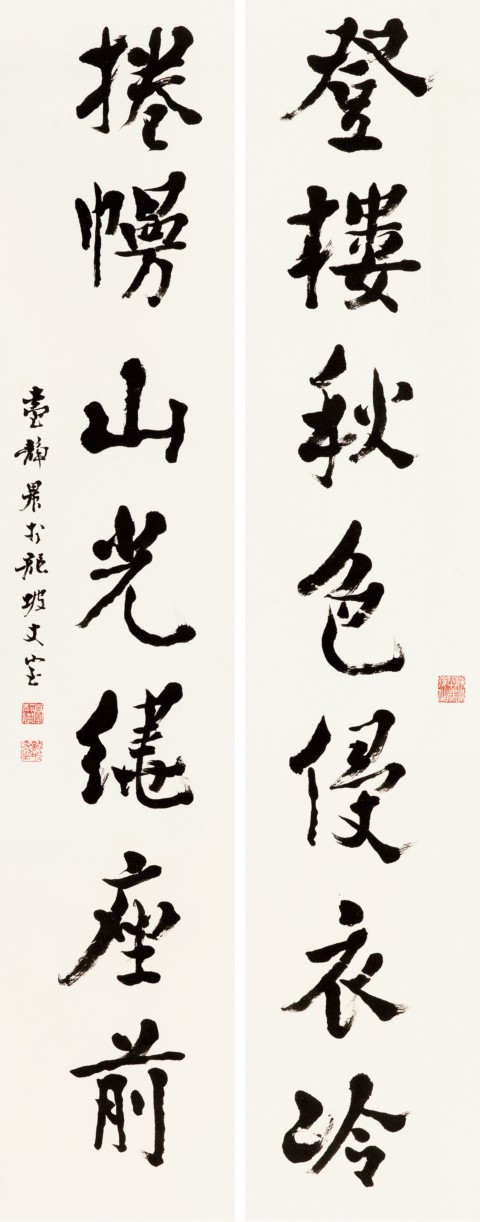 登樓秋色侵衣冷
捲幔山光繞座前
臺靜農於龍坡丈室